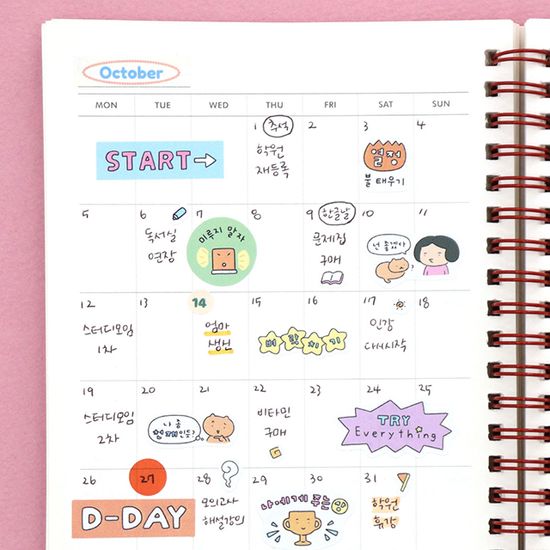 October
MON TUE WED THU FRI SAT SUN
START
1 추석 2 3 4
학원
재등록
열정
불태우기
5 6 7 8 9 한글날 10 11
독서실
연장
미루지 말자
문제집
구매
넌 좋겠다
12 13 14 15 16 17 18
스터디모임
1차
엄마
생신
벼락치기
인강
다시시작
19 20 21 22 23 24 25
스터디모임
2차
나 좀
천재인듯?
비타민
구매
TRY
Everything
26 27 28 29 30 31
D-DAY
모의고사
해설강의
나에게 주는
학원
휴강